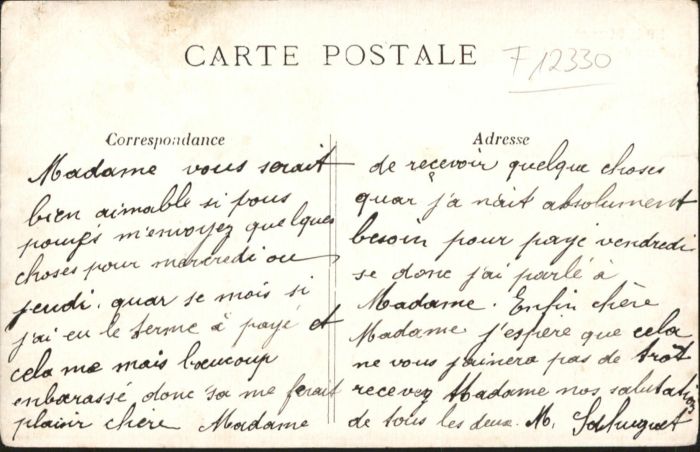 CARTE POSTALE
F 12330
Correspondance
Madame vous serait
bien aimable si vous
pouvés m'envoyez quelques
choses pour mercredi ou
jeudi. quar se mois si
j'ai eu le terme à payé et
cela me mais baucoup
enbarassé donc sa me ferait
plaisir chère Madame
Adresse
de recevoir quelque choses
quar j'a nait absolument
besoin pour payé vendredi
se donc j'ai parlé à
Madame. Enfin chère
Madame j'espere que cela
ne vous jainera pas de trot
recevez Madame nos salutations
de tous les deux. M.